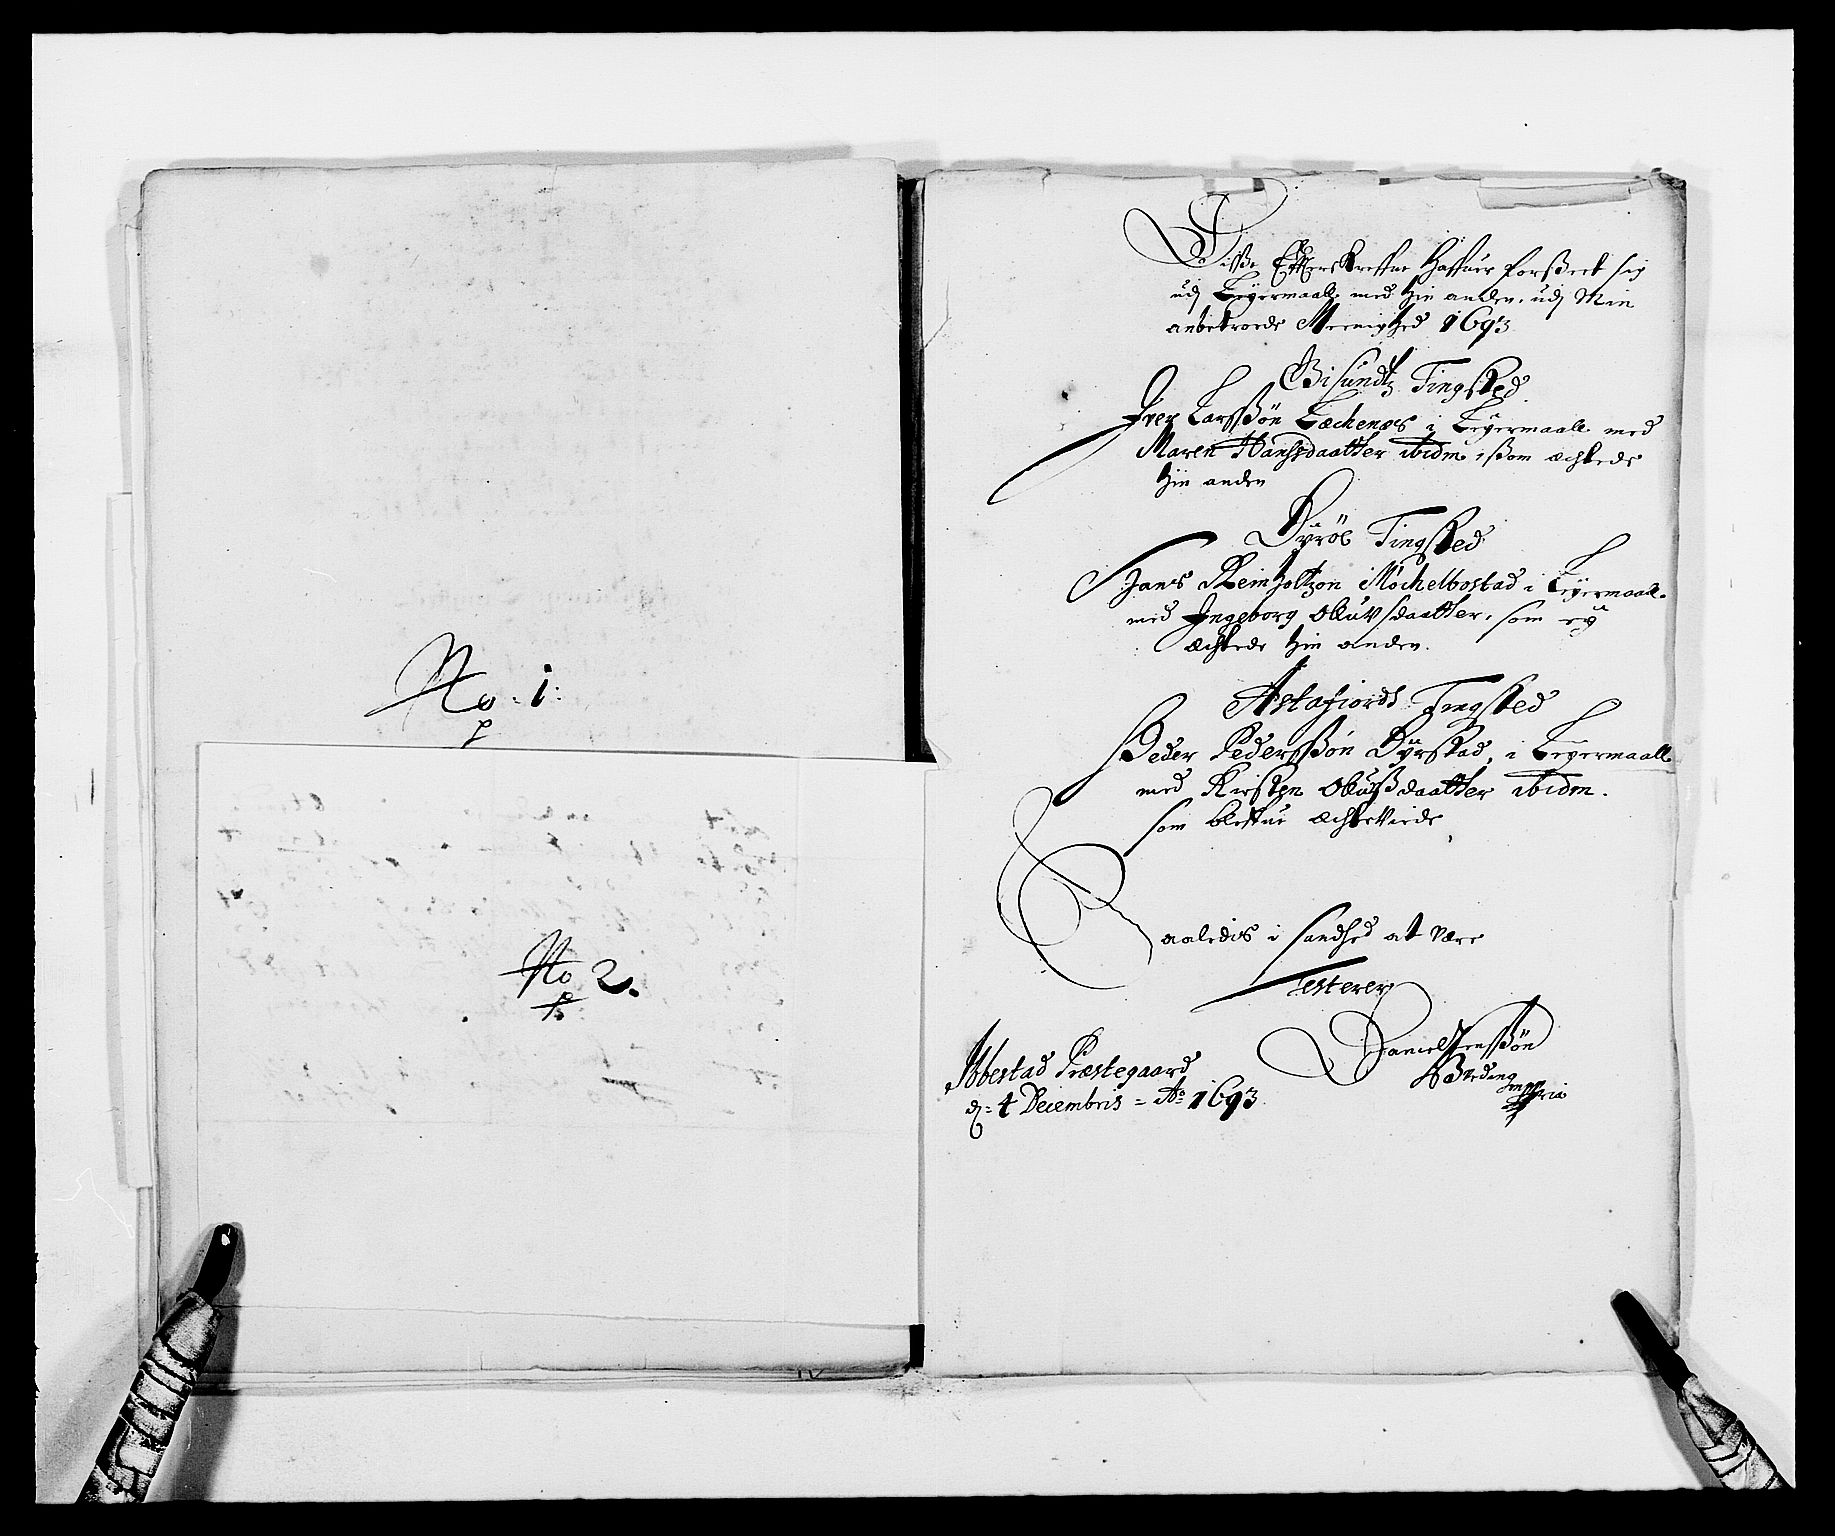 No: 1:
No 2.
Disse Efterskrefne Haffuer forseet sig
udj Leyermaall med hin anden, udj Min
anbetroede Meenighed 1693
Gisundtz Tingsted
Iver Larssøn Læchenæs i Leyermaall med
Maren Hansdaatter ibidm, som æchtede
hin anden
Dÿrøe Tingsted
Hans Reinholtzøn Møchelbostad i Leyermaall
med Ingeborg Oluvsdaatter, som eÿ
æchtede hin anden.
Astafiords Tingsted
Peder Pederssøn Dÿrstad, i Leyermaall
med Kirsten Olufsdaatter ibidm.
som bleffue æchteviede
Saaledis i sandhed at være
Testerer
Daniel Jenssøn
Breding
mppria
Ibbestad Præstegaard
d: 4 Decembris = Ao 1693